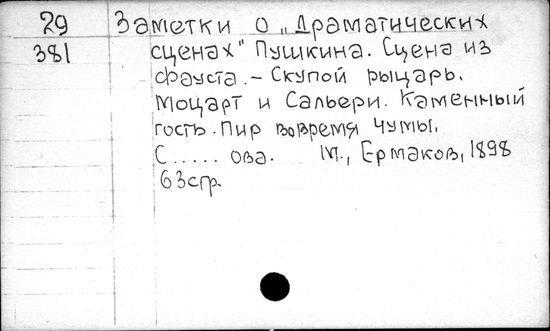 29 Заметки о „Драматических
381 сценах" Пушкина. Сцена из
Фауста. - Скупой рыцарь.
Моцарт и Сальери. Каменный
гость. Пир вовремя чумы.
С ..... ова. М., Ермаков, 1898
63стр.